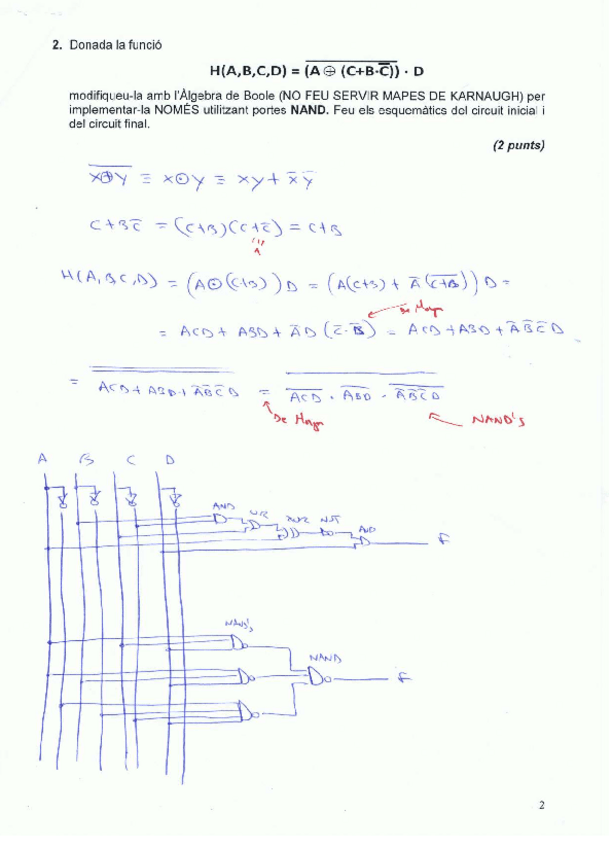 2. Donada la funció
H(A,B,C,D) = \overline{(A ⊕ (C+B·\overline{C}))} · D
modifiqueu-la amb l'Àlgebra de Boole (NO FEU SERVIR MAPES DE KARNAUGH) per
implementar-la NOMÉS utilitzant portes NAND. Feu els esquemàtics del circuit inicial i
del circuit final.
(2 punts)
\overline{x⊕y} ≡ x⊙y ≡ xy + \overline{x} \overline{y}
C+B\overline{C} = (C+B)(C+\overline{C}) = C+B
"1"
H(A,B,C,D) = (A⊙(C+B)) D = (A(C+B) + \overline{A}(\overline{C+B})) D =
De Morgan
= ACD + ABD + \overline{A}D(\overline{C}·\overline{B}) = ACD + ABD + \overline{A}\overline{B}\overline{C}D
= \overline{\overline{ACD + ABD + \overline{A}\overline{B}\overline{C}D}} = \overline{\overline{ACD} · \overline{ABD} · \overline{\overline{A}\overline{B}\overline{C}D}}
De Morgan
NAND's
A B C D
AND
NOT
AND
F
NAND's
NAND
F
2